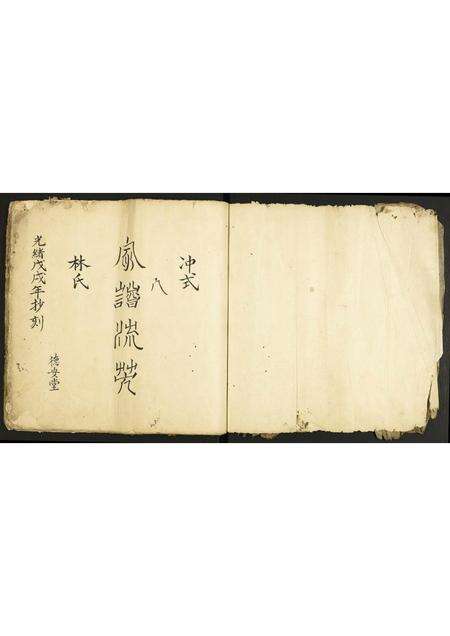 冲弎
八
家譜流芳
林氏
光緒戊戌年抄刻
德安堂